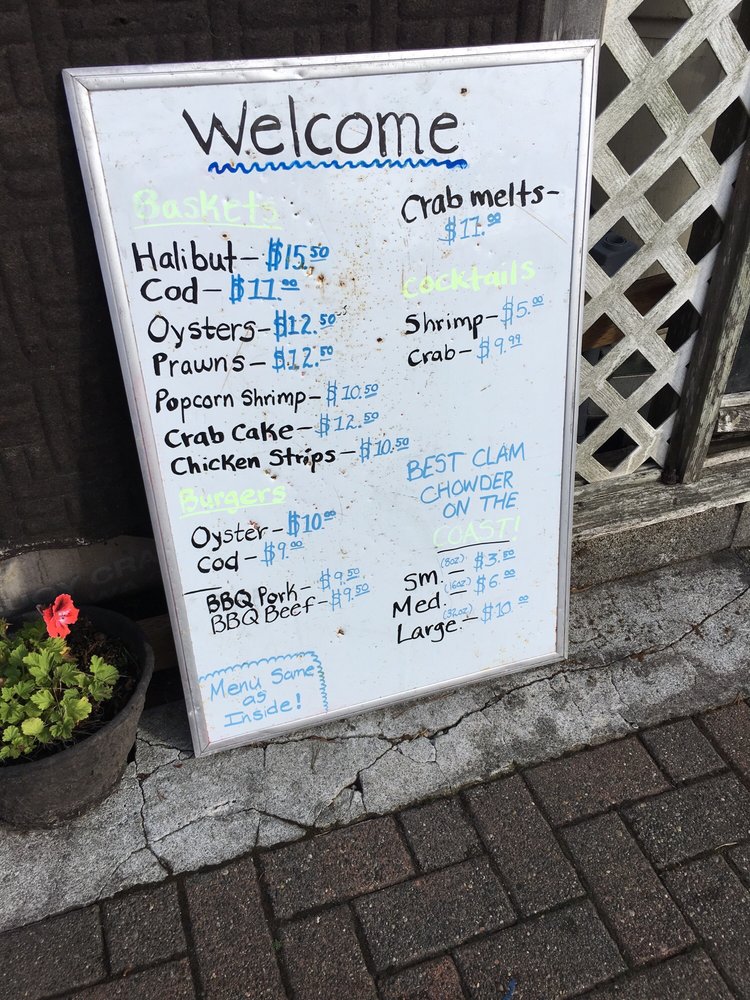 Welcome
Baskets
Halibut - $15.50
Cod - $11.00
Oysters - $12.50
Prawns - $12.50
Popcorn Shrimp - $10.50
Crab Cake - $12.50
Chicken Strips - $10.50
Burgers
Oyster - $10.00
Cod - $9.00
BBQ Pork - $9.50
BBQ Beef - $9.50
Menu Same
as
Inside!
Crab melts -
$11.00
Cocktails
Shrimp - $5.00
Crab - $9.99
BEST CLAM
CHOWDER
ON THE
COAST!
Sm. - (8oz) $3.50
Med. - (16oz) $6.00
Large - (32oz) $10.00